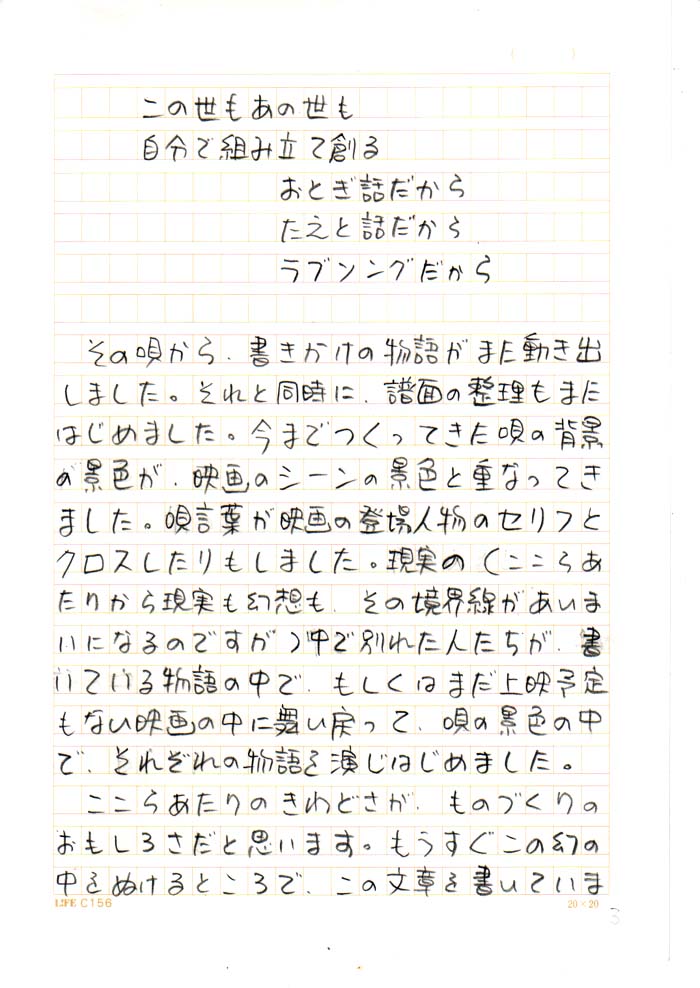 この世もあの世も
自分で組み立て創る
おとぎ話だから
たえと話だから
ラブソングだから
その唄から、書きかけの物語がまた動き出
しました。それと同時に、譜面の整理もまた
はじめました。今までつくってきた唄の背景
の景色が、映画のシーンの景色と重なってき
ました。唄言葉が映画の登場人物のセリフと
クロスしたりもしました。現実の(ここらあ
たりから現実も幻想も、その境界線があいま
いになるのですが)中で別れた人たちが、書
いている物語の中で、もしくはまだ上映予定
もない映画の中に舞い戻って、唄の景色の中
で、それぞれの物語を演じはじめました。
ここらあたりのきわどさが、ものづくりの
おもしろさだと思います。もうすぐこの幻の
中をぬけるところで、この文章を書いていま
LIFE C156
20×20
3